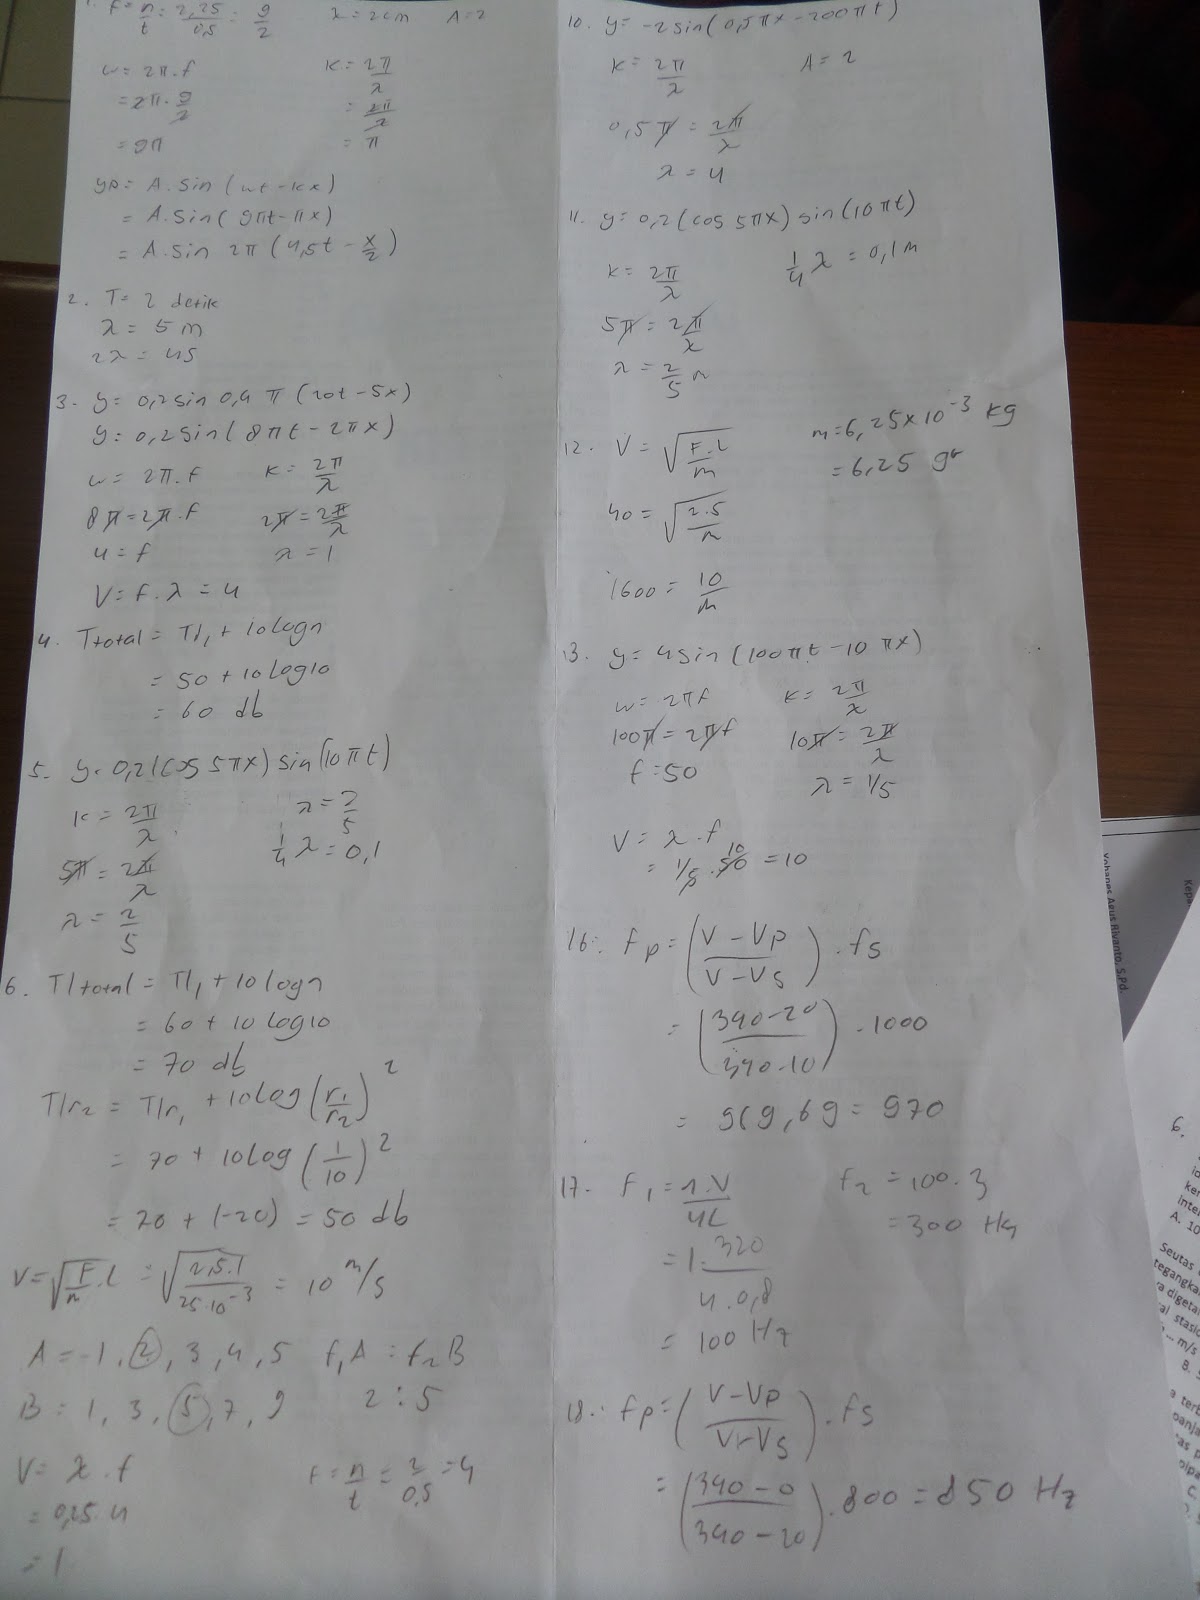 1. f = n/t = 2,25/0,5 = 9/2   λ = 2cm   A = 2
ω = 2π.f   K = 2π/λ
= 2π.9/2   = 2π/2
= 9π   = π
yp = A.sin(ωt - kx)
= A.sin(9πt - πx)
= A.sin 2π(4,5t - x/2)
2. T = 2 detik
λ = 5 m
2λ = 45
3. y = 0,2 sin 0,4 π (20t - 5x)
y = 0,2 sin(8πt - 2πx)
ω = 2π.f   K = 2π/λ
8π = 2π.f   2π = 2π/λ
4 = f   λ = 1
V = f.λ = 4
4. Ttotal = TI1 + 10 log n
= 50 + 10 log 10
= 60 db
5. y = 0,2(cos 5πx) sin(10πt)
K = 2π/λ   λ = 2/5
5π = 2π/λ   1/4 λ = 0,1
λ = 2/5
6. TI total = TI1 + 10 log n
= 60 + 10 log 10
= 70 db
TIr2 = TIr1 + 10 log (r1/r2)²
= 70 + 10 log (1/10)²
= 70 + (-20) = 50 db
V = √F/m.L = √2,5.1/25.10⁻³ = 10 m/s
A = -1, 2, 3, 4, 5   f1A = f2B
B = 1, 3, 5, 7, 9   2 : 5
V = λ.f   f = n/t = 2/0,5 = 4
= 0,25.4
= 1
10. y = -2 sin(0,5πx - 200πt)
K = 2π/λ   A = 2
0,5π = 2π/λ
λ = 4
11. y = 0,2(cos 5πx) sin(10πt)
K = 2π/λ   1/4 λ = 0,1 m
5π = 2π/λ
λ = 2/5 m
12. V = √F.L/m   m = 6,25×10⁻³ kg
= 6,25 gr
40 = √2.5/m
1600 = 10/m
13. y = 4 sin(100πt - 10πx)
ω = 2πf   K = 2π/λ
100π = 2πf   10π = 2π/λ
f = 50   λ = 1/5
V = λ.f
= 1/5.50 10 = 10
16. fp = (V - Vp/V - Vs).fs
= (340-20/340-10).1000
= 969,69 = 970
17. F1 = 1.V/4L   f2 = 100.3
= 1.320/4.0,8   = 300 Hz
= 100 Hz
18. fp = (V-Vp/V-Vs).fs
= (340-0/340-20).800 = 850 Hz
Yohanes Agus Riyanto, S.Pd.
Kepa
6.
ke
inte
A. 10
Seutas
tegangka
ra digeta
al stasi
... m/s
B.
a terb
panja
tas p
C.